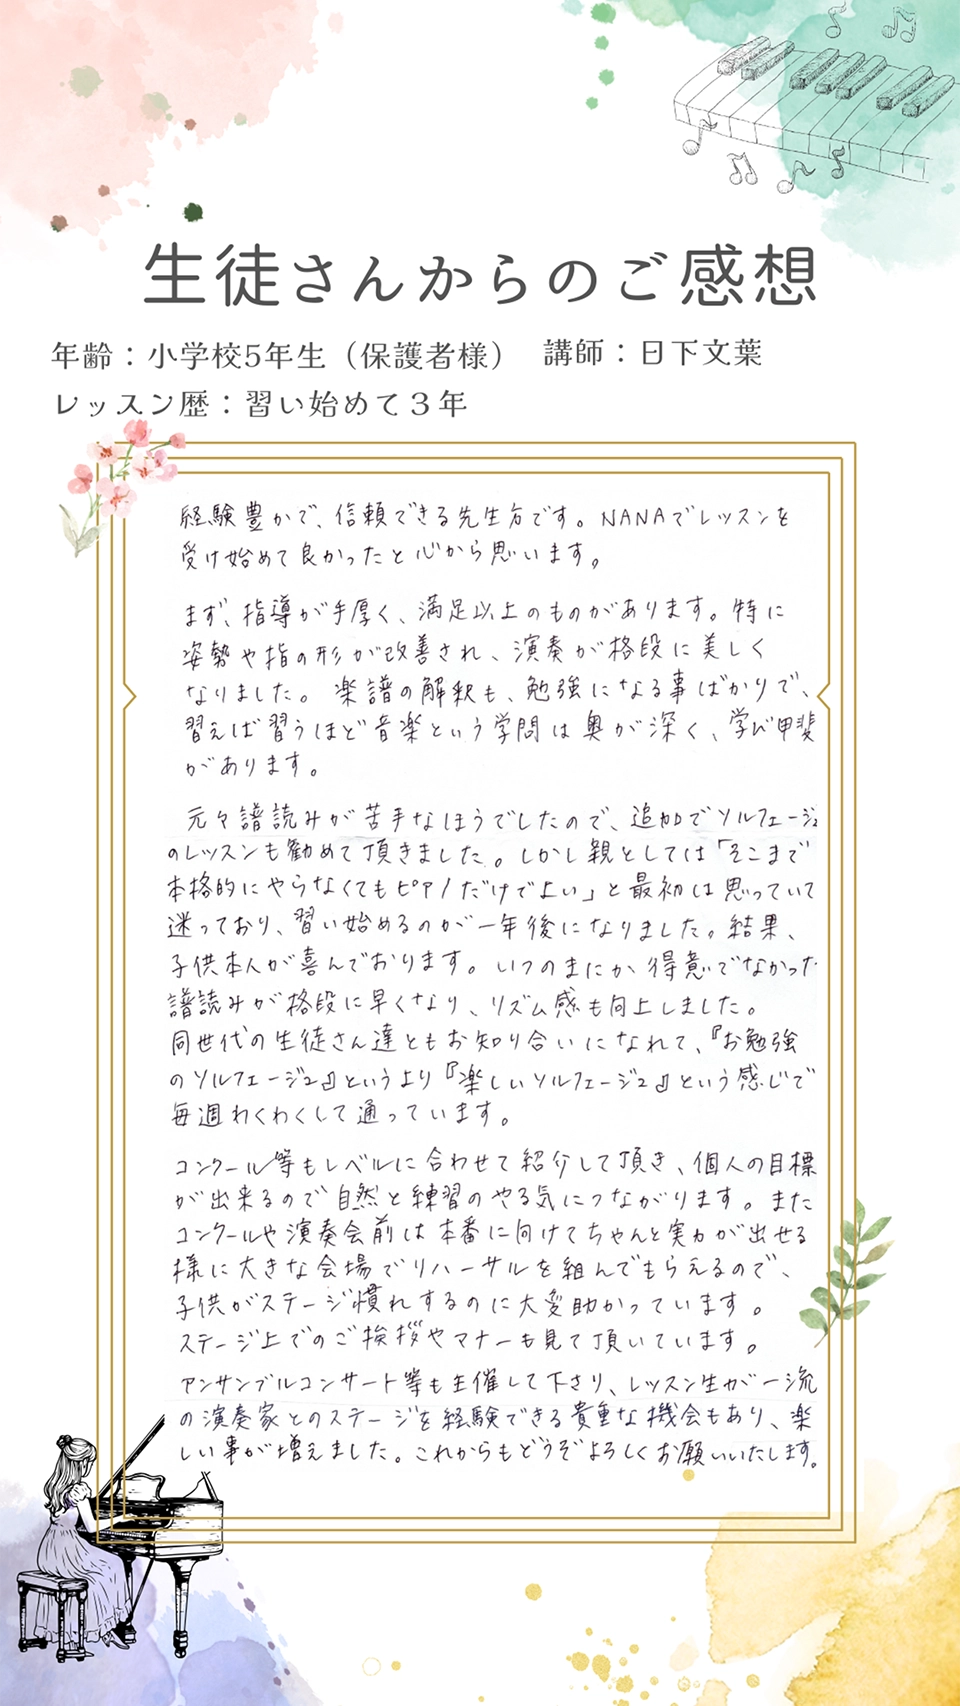 生徒さんからのご感想
年齢：小学校5年生（保護者様）　講師：日下文葉
レッスン歴：習い始めて３年
経験豊かで、信頼できる先生方です。NANAでレッスンを
受け始めて良かったと心から思います。
まず、指導が手厚く、満足以上のものがあります。特に
姿勢や指の形が改善され、演奏が格段に美しく
なりました。楽譜の解釈も、勉強になる事ばかりで、
習えば習うほど音楽という学問は奥が深く、学び甲斐
があります。
元々譜読みが苦手なほうでしたので、追加でソルフェージュ
のレッスンも勧めて頂きました。しかし親としては「そこまで
本格的にやらなくてもピアノだけでよい」と最初は思っていて
迷っており、習い始めるのが一年後になりました。結果、
子供本人が喜んでおります。いつのまにか得意でなかった
譜読みが格段に早くなり、リズム感も向上しました。
同世代の生徒さん達ともお知り合いになれて、『お勉強
のソルフェージュ』というより『楽しいソルフェージュ』という感じで
毎週わくわくして通っています。
コンクール等もレベルに合わせて紹介して頂き、個人の目標
が出来るので自然と練習のやる気につながります。また
コンクールや演奏会前は本番に向けてちゃんと実力が出せる
様に大きな会場でリハーサルを組んでもらえるので、
子供がステージ慣れするのに大変助かっています。
ステージ上でのご挨拶やマナーも見て頂いています。
アンサンブルコンサート等も主催して下さり、レッスン生が一流
の演奏家とのステージを経験できる貴重な機会もあり、楽
しい事が増えました。これからもどうぞよろしくお願いいたします。